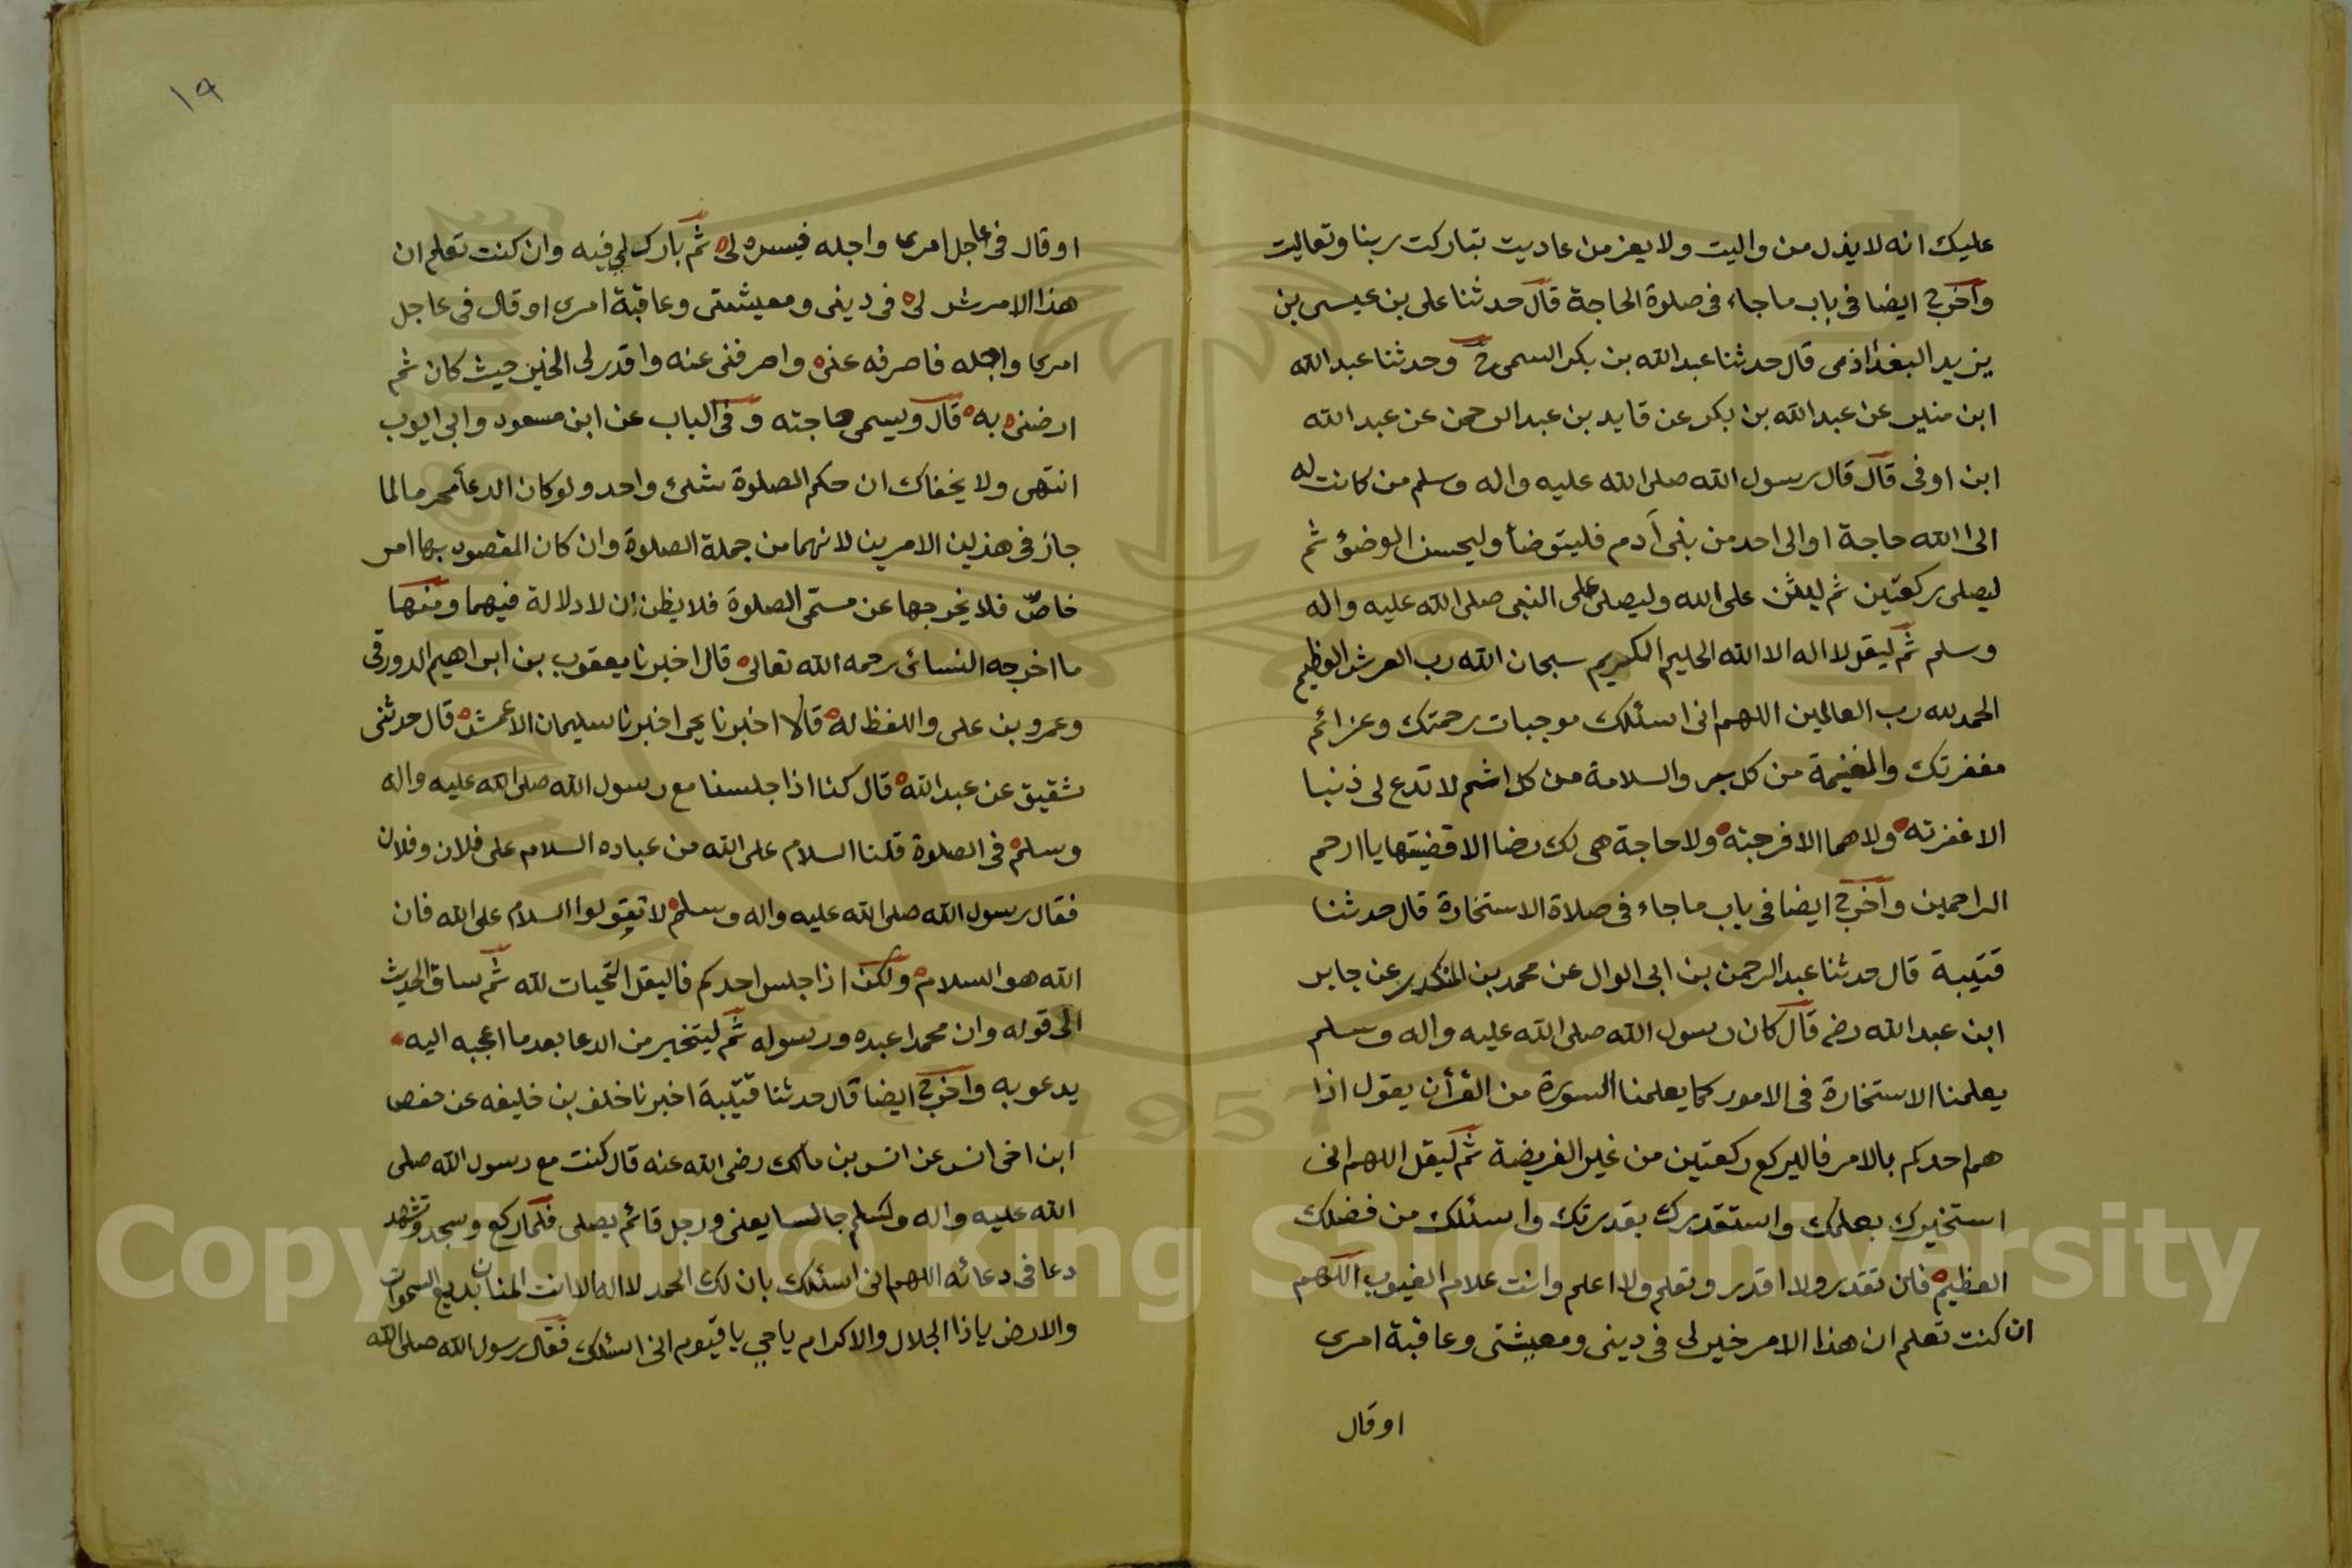 عليك انه لا يذل من واليت ولا يعز من عاديت تباركت ربنا وتعاليت
وآخرج ايضا في باب ما جاء في صلوة الحاجة قال حدثنا على بن عيسى بن
يزيد البغداذى قال حدثنا عبدالله بن بكر السمى ح وحدثنا عبدالله
ابن منير عن عبدالله بن بكر عن قايد بن عبدالرحمن عن عبدالله
ابن اوفى قال قال رسول الله صلى الله عليه واله وسلم من كانت له
الى الله حاجة او الى احد من بنى آدم فليتوضأ وليحسن الوضؤ ثم
ليصلى ركعتين ثم ليثن على الله وليصلى على النبى صلى الله عليه واله
وسلم ثم ليقل لا اله الا الله الحليم الكريم سبحان الله رب العرش العظيم
الحمد لله رب العالمين اللهم انى اسئلك موجبات رحمتك وعزائم
مغفرتك والغنيمة من كل بر والسلامة من كل اثم لا تدع لى ذنبا
الا غفرته ولا هما الا فرجته ولا حاجة هى لك رضا الا قضيتها يا ارحم
الراحمين وآخرج ايضا فى باب ما جاء فى صلاة الاستخارة قال حدثنا
قتيبة قال حدثنا عبدالرحمن بن ابى الوال عن محمد بن المنكدر عن جابر
ابن عبدالله رضه قال كان رسول الله صلى الله عليه واله وسلم
يعلمنا الاستخارة فى الامور كما يعلمنا السورة من القرآن يقول اذا
هم احدكم بالامر فاليركع ركعتين من غير الفريضة ثم ليقل اللهم انى
استخيرك بعلمك واستقدرك بقدرتك واسئلك من فضلك
العظيم فان تقدر ولا اقدر وتعلم ولا اعلم وانت علام الغيوب اللهم
ان كنت تعلم ان هذا الامر خير لى فى دينى ومعيشتى وعاقبة امرى
او قال
١٩
او قال فى عاجل امرى واجله فيسره لى ثم بارك لي فيه وان كنت تعلم ان
هذا الامر شر لى فى دينى ومعيشتى وعاقبة امرى او قال فى عاجل
امرى واجله فاصرفه عنى واصرفنى عنه واقدر لى الخير حيث كان ثم
ارضنى به قال ويسمى حاجته وفى الباب عن ابن مسعود وابى ايوب
انتهى ولا يخفاك ان حكم الصلوة شئ واحد ولو كان الدعأ محرما لما
جاز فى هذين الامرين لانهما من جملة الصلوة وان كان المقصود بها امر
خاصّ فلا يخرجها عن مسمّى الصلوة فلا يظن ان لا دلالة فيهما ومنها
ما اخرجه النسائى رحمه الله تعالى قال اخبرنا يعقوب بن ابراهيم الدورقى
وعمرو بن على واللفظ له قالا اخبرنا يحى اخبرنا سليمان الاعمش قال حدثنى
شقيق عن عبدالله قال كنا اذا جلسنا مع رسول الله صلى الله عليه واله
وسلم فى الصلوة قلنا السلام على الله من عباده السلام على فلان وفلان
فقال رسول الله صلى الله عليه واله وسلم لا تقولوا السلام على الله فان
الله هو السلام ولكن اذا جلس احدكم فاليقل التحيات لله ثم ساق الحديث
الى قوله وان محمدا عبده ورسوله ثم ليتخير من الدعا بعد ما اعجبه اليه
يدعو به وآخرج ايضا قال حدثنا قتيبة اخبرنا خلف بن خليفه عن حفص
ابن اخى انس عن انس بن مالك رضى الله عنه قال كنت مع رسول الله صلى
الله عليه واله وسلم جالسا يعنى ورجل قائم يصلى فلما ركع وسجد وتشهد
دعا فى دعائه اللهم انى اسئلك بان لك الحمد لا اله الا انت المنان بديع السموات
والارض يا ذا الجلال والاكرام يا حي يا قيوم انى اسئلك فقال رسول الله صلى الله
1957
Copyright © King Saud University